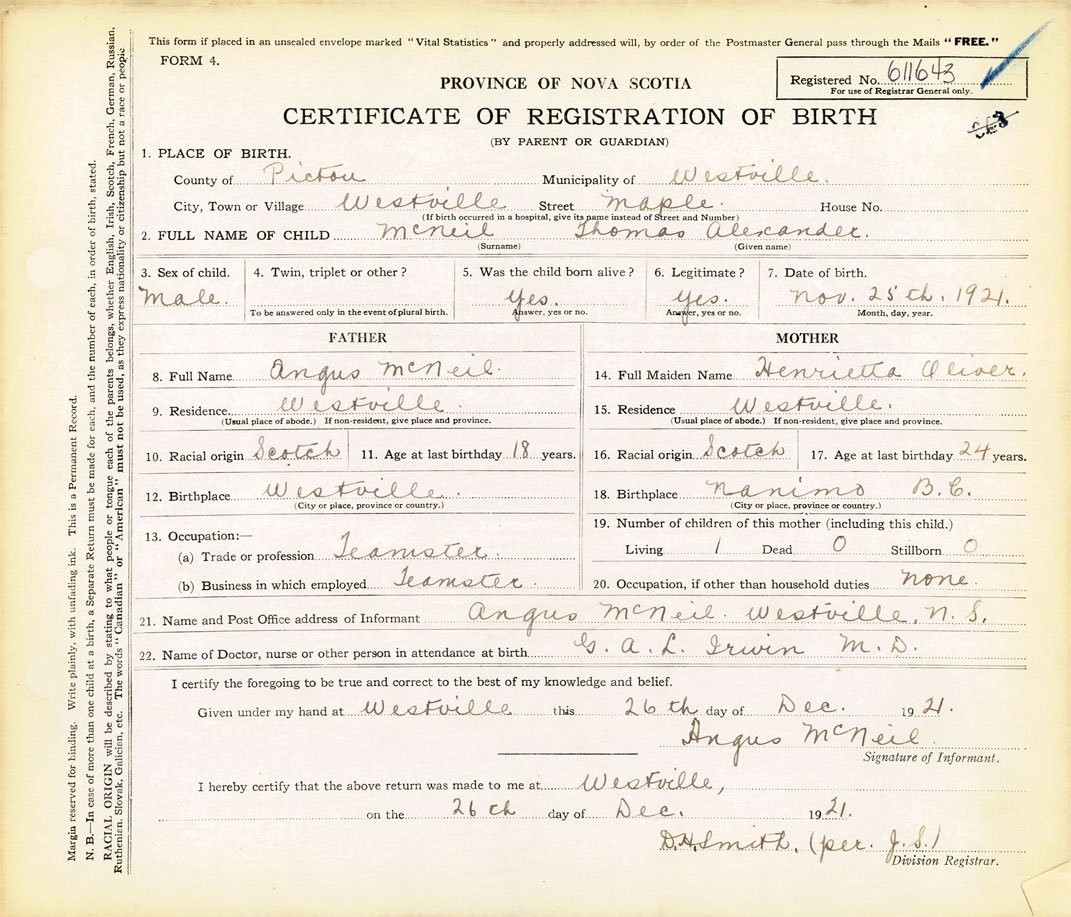 This form if placed in an unsealed envelope marked "Vital Statistics" and properly addressed will, by order of the Postmaster General pass through the Mails "FREE."
FORM 4.
Registered No. 611643
For use of Registrar General only.
PROVINCE OF NOVA SCOTIA
CERTIFICATE OF REGISTRATION OF BIRTH
(BY PARENT OR GUARDIAN)
1. PLACE OF BIRTH.
County of Pictou Municipality of Westville.
City, Town or Village Westville Street Maple. House No.
(If birth occurred in a hospital, give its name instead of Street and Number)
2. FULL NAME OF CHILD McNeil Thomas Alexander.
(Surname) (Given name)
3. Sex of child. 4. Twin, triplet or other? 5. Was the child born alive? 6. Legitimate? 7. Date of birth.
Male. Yes. Yes. Nov. 25th. 1921.
To be answered only in the event of plural birth. Answer, yes or no. Answer, yes or no. Month, day, year.
FATHER MOTHER
8. Full Name Angus McNeil. 14. Full Maiden Name Henrietta Oliver.
9. Residence. Westville. 15. Residence Westville.
(Usual place of abode.) If non-resident, give place and province. (Usual place of abode.) If non-resident, give place and province.
10. Racial origin Scotch 11. Age at last birthday 18 years. 16. Racial origin Scotch 17. Age at last birthday 24 years.
12. Birthplace Westville. 18. Birthplace Nanimo B.C.
(City or place, province or country.) (City or place, province or country.)
13. Occupation:— 19. Number of children of this mother (including this child.)
(a) Trade or profession Teamster. Living 1 Dead 0 Stillborn 0
(b) Business in which employed Teamster. 20. Occupation, if other than household duties none.
21. Name and Post Office address of Informant Angus McNeil. Westville, N. S.
22. Name of Doctor, nurse or other person in attendance at birth G. A. L. Irwin M. D.
I certify the foregoing to be true and correct to the best of my knowledge and belief.
Given under my hand at Westville this 26th day of Dec. 1921.
Angus McNeil.
Signature of Informant.
I hereby certify that the above return was made to me at Westville,
on the 26th day of Dec. 1921.
D.H. Smith. (per. J.S.)
Division Registrar.
Margin reserved for binding. Write plainly, with unfading ink. This is a Permanent Record.
N. B.—In case of more than one child at a birth, a Separate Return must be made for each, and the number of each, in order of birth, stated.
RACIAL ORIGIN will be described by stating to what people or tongue each of the parents belongs, whether English, Irish, Scotch, French, German, Russian,
Ruthenian, Slovak, Galician, etc. The words "Canadian" or "American" must not be used, as they express nationality or citizenship but not a race or people